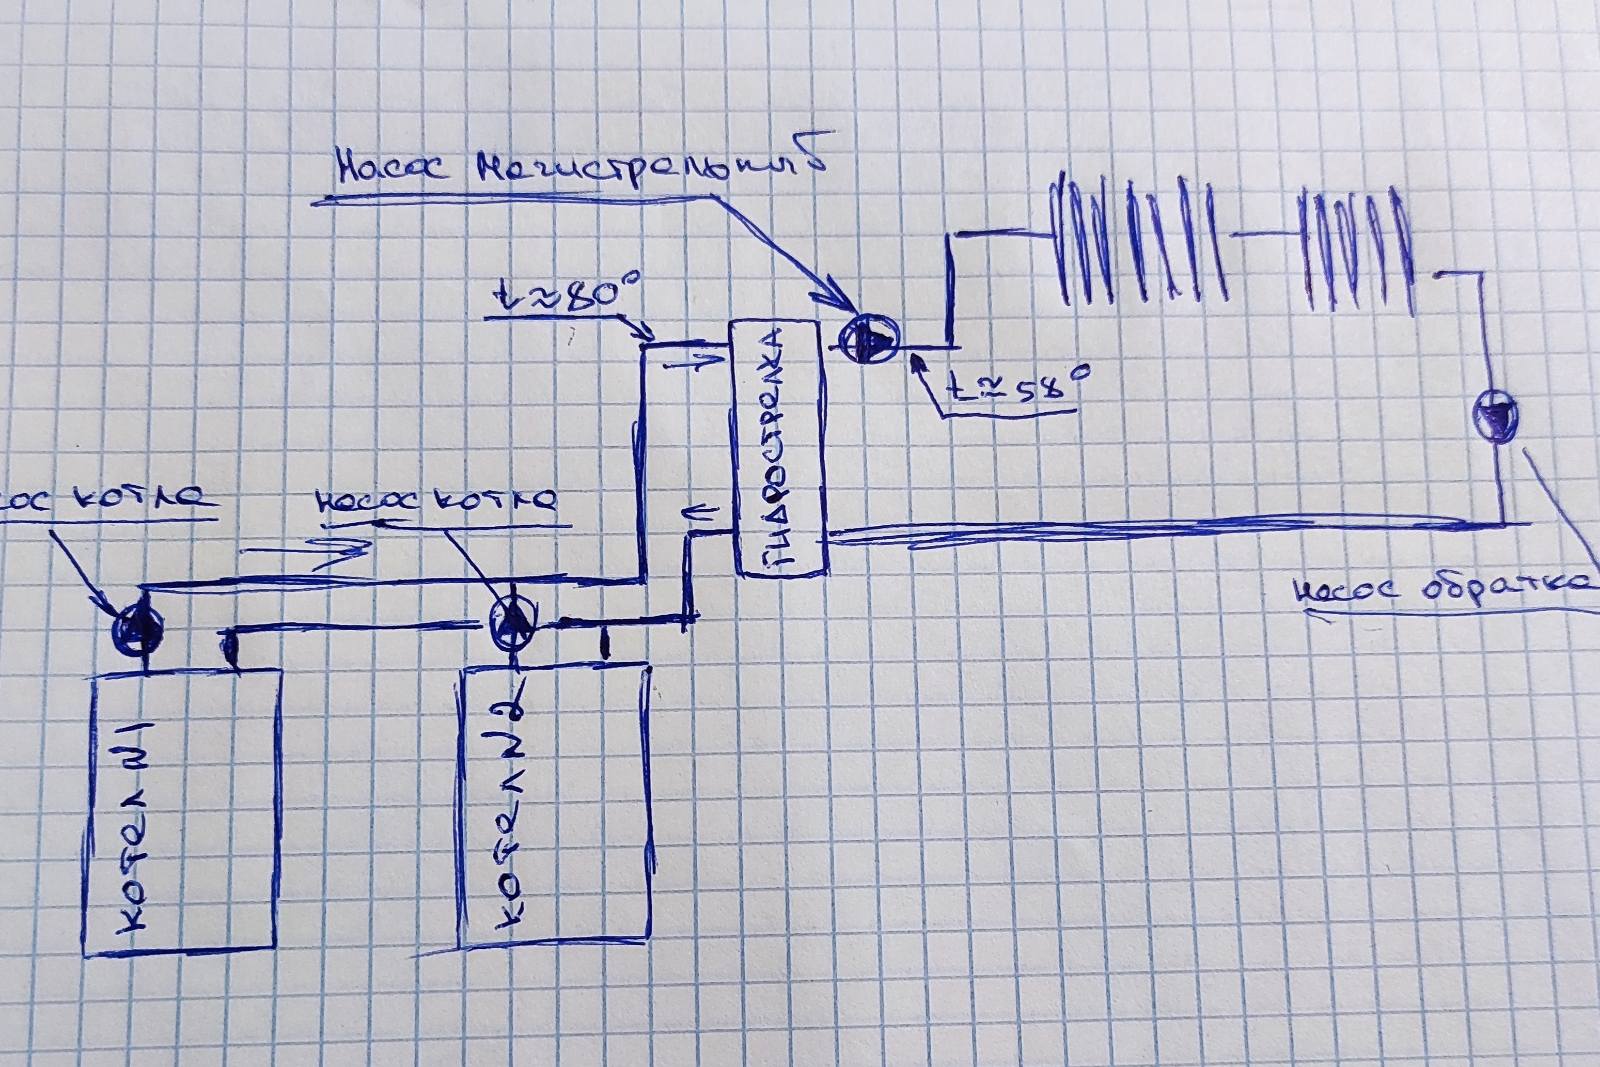 Насос магистральный
t≈80°
t≈58°
ГИДРОСТРЕЛКА
насос котла
насос обратка
КОТЕЛ N1
КОТЕЛ N2